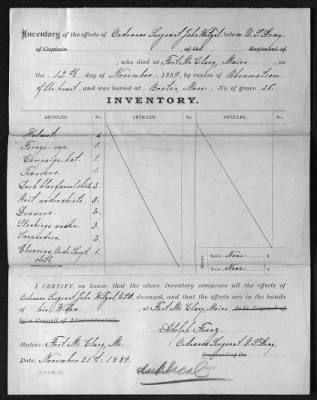 Inventory of the effects of Ordnance Sergeant John Wetzel, late U. S. Army
of Captain of the Regiment of
, who died at Fort McClary, Maine on
the 12th day of November, 1889, by reason of
of the heart, and was buried at Mass. No. of grave 25.
INVENTORY.
ARTICLES. No. ARTICLES. No. ARTICLES. No.
Helmet 2
Forage cap 1.
Campaign hat. 1.
Trousers 1.
Dark blue flannel shirts 3.
Knit undershirts. 3.
Drawers 2.
Stockings woolen 3.
Suspenders 2.
Chevrons, Ord. Sergt. 1
cloth
Money
Specie None
Notes None
I CERTIFY, on honor, that the above Inventory comprises all the effects of
Ordnance Sergeant John Wetzel, U.S.A. deceased, and that the effects are in the hands
of his Widow, at Fort McClary, Maine, to be disposed of
by a Council of Administration.
Adolph
Ordnance Sergeant U. S. Army,
Commanding the
Station: Fort McClary, Me.
Date: November 21st, 1889.